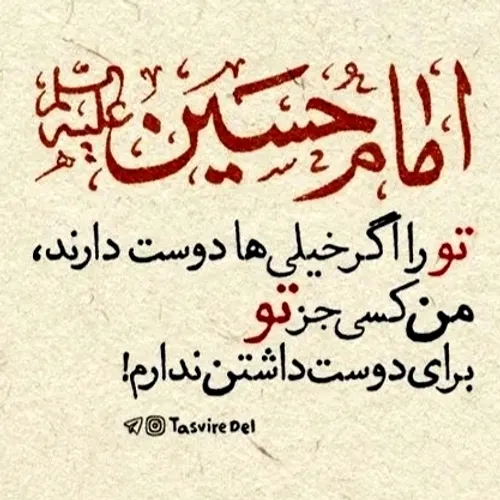 امام حسین علیه السلام
تو را اگر خیلی‌ها دوست دارند،
من کسی جز تو
برای دوست داشتن ندارم!
Tasvire Del